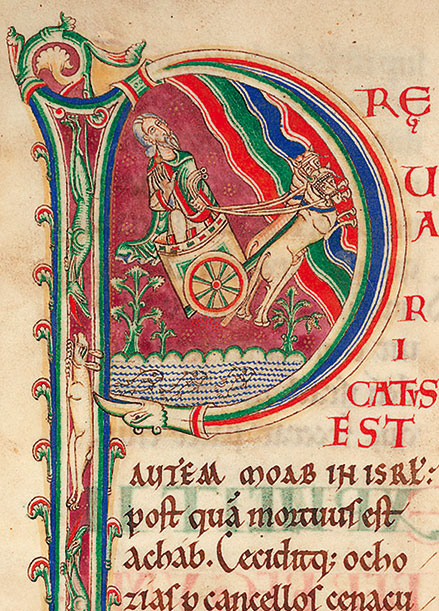 P
RĘ
U
A
R
I
CATVS
EST
AUTEM MOAB IN ISRL̄:
post quā mortuus est
achab. Ceciditq; ocho
zias p cancellos cenacu